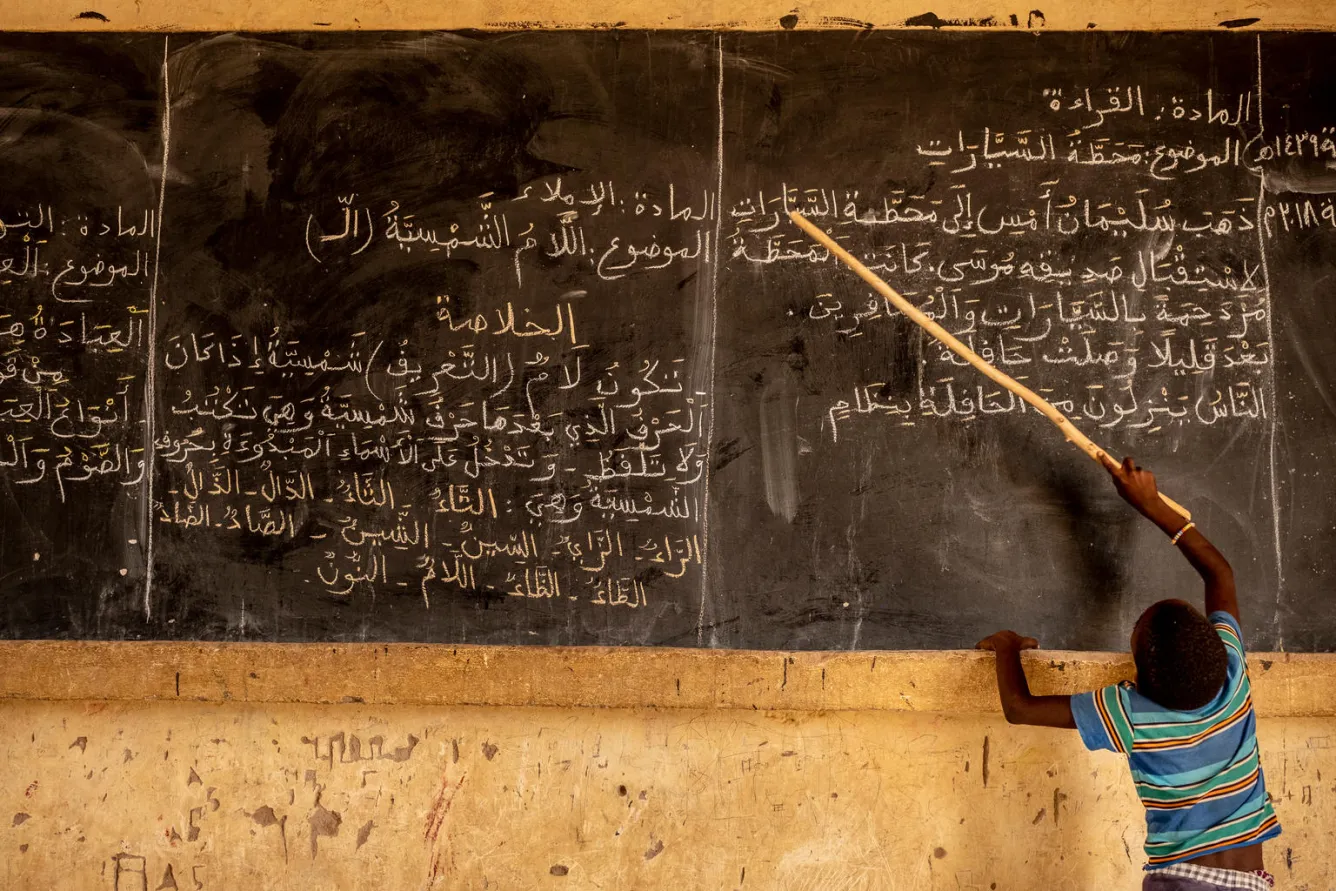 ١٤٣٩ه
٢٠١٨م
المادة: القراءة
الموضوع: مَحَطَّةُ السَّيَّارَاتِ
ذَهَبَ سُلَيْمَانُ أَمْسِ إِلَى مَحَطَّةِ السَّيَّارَاتِ
لِاسْتِقْبَالِ صَدِيقِهِ مُوسَى. كَانَتِ الْمَحَطَّةُ
مُزْدَحِمَةً بِالسَّيَّارَاتِ وَالْمُسَافِرِينَ.
بَعْدَ قَلِيلًا وَصَلَتْ حَافِلَة
النَّاسُ يَنْزِلُونَ مِنَ الحَافِلَةِ بِنِظَامٍ
المادة: الإملاء
الموضوع: اللَّامُ الشَّمْسِيَّةُ (الّـ)
الخلاصة
تَكُونُ لَامُ (التَّعْرِيفُ) شَمْسِيَّةُ إِذَا كَانَ
الْحَرْفُ الَّذِي بَعْدَهَا حَرْفُ شَمْسِيَةُ وَهِيَ تَكْتُبُ
وَلَا تَلْفَظُ - وَتَدْخُلُ عَلَى الْأَسْمَاءِ الْمَبْدُوءَةِ بِحُرُوفِ
الشَّمْسِيَةُ وَهِيَ: التَّاءُ - الثَّاءُ - الدَّالُ - الذَّالُ -
الرَّاءُ - الزَّايُ - السِّينُ - الشِّينُ - الصَّادُ - الضَّادُ
الطَّاءُ - الظَّاءُ - اللَّامُ - النُّونُ.
المادة:
الموضوع:
الْعِبَادَةُ هِيَ
مِنْ
أَنْوَاعُ
وَالصَّوْمُ